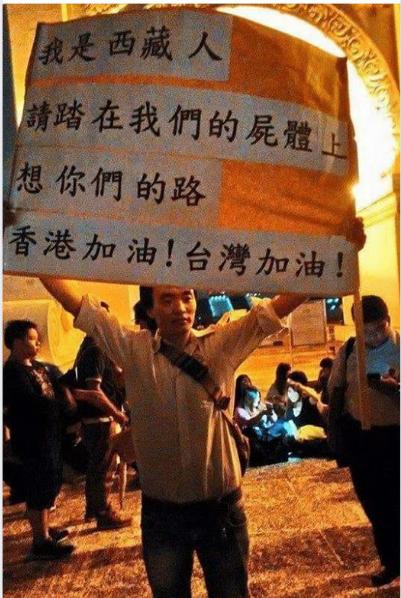 我是西藏人
請踏在我們的屍體上
想你們的路
香港加油!台灣加油!